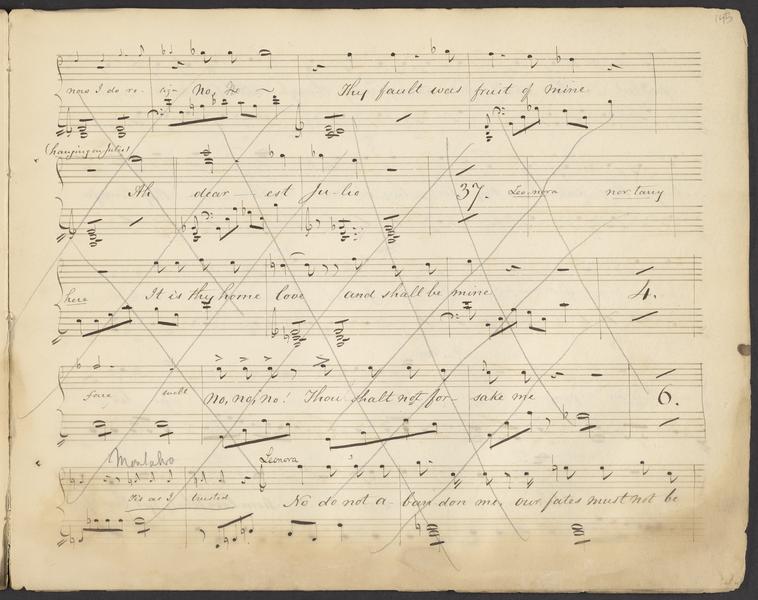 143
now I do re- sign No, No Thy fault was fruit of mine
(hanging on Julio)
Ah dear - est Ju-lio 37. Leonora nor tarry
here It is thy home love and shall be mine 4.
fare well No, no, no! Thou shalt not for- sake me 6.
Montalvo Leonora
its as I trusted No do not a- ban don me, our fates must not be